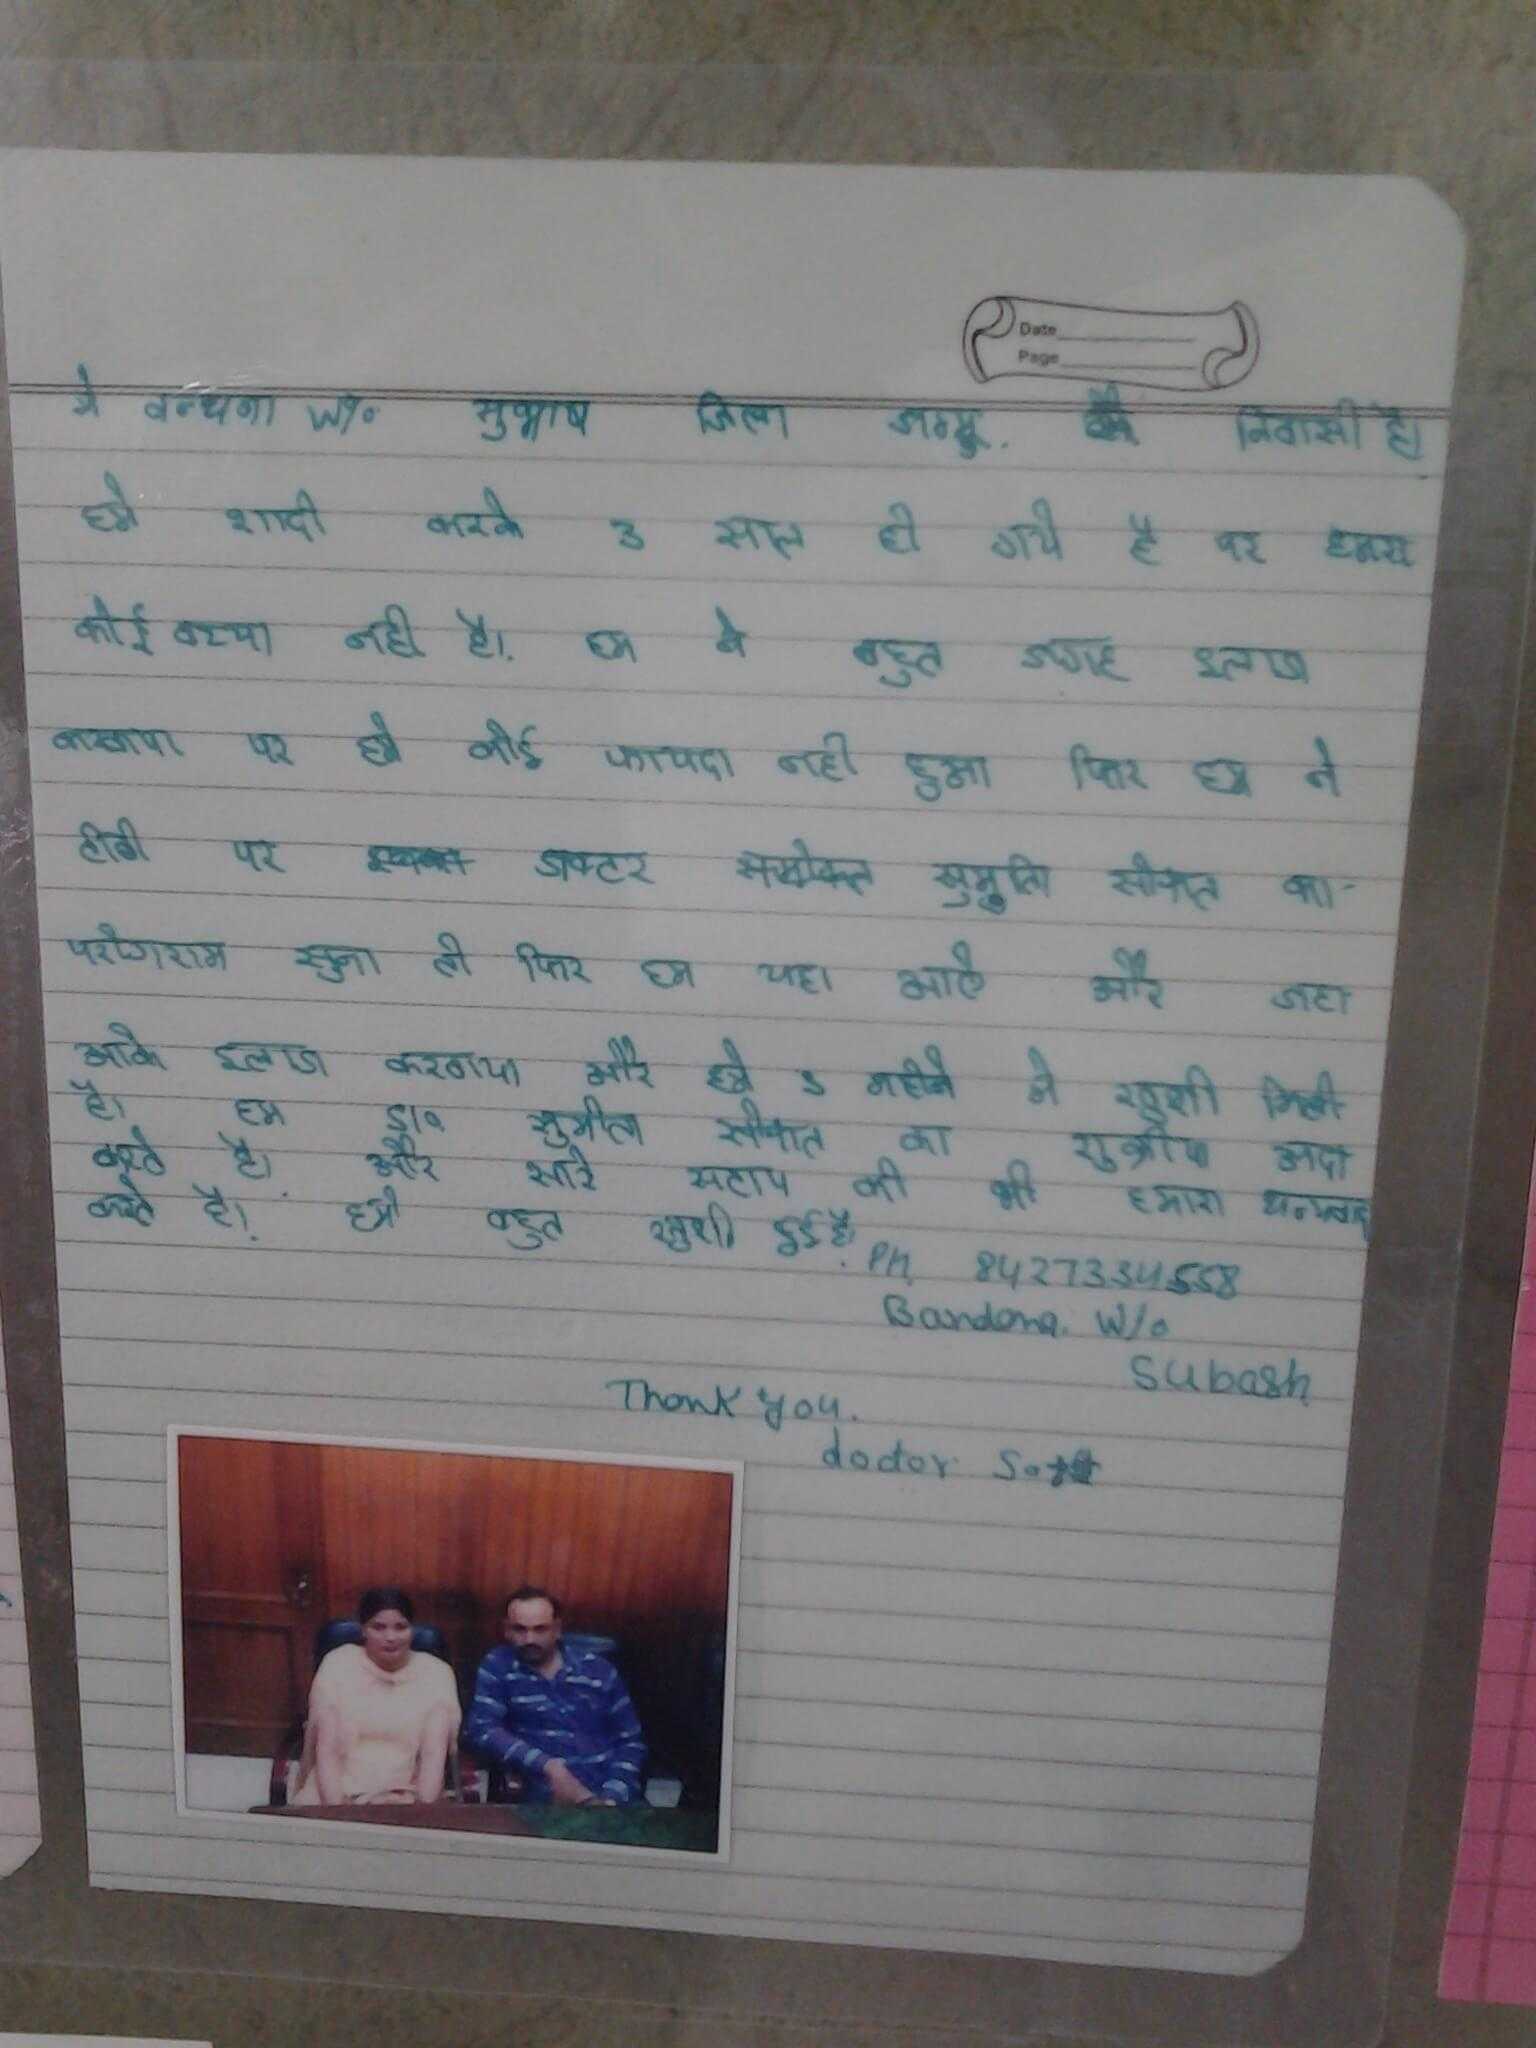 Date
Page
मे वन्धना W/o सुभाष जिला जम्मू. के निवासी है।
हमे शादी करके 3 साल हो गये है पर हमारा
कोई बच्चा नही है। हम ने बहुत जगह इलाज
करवाया पर हमे कोई फायदा नही हुआ फिर हम ने
टीवी पर डाक्टर सोफत का
परोगराम सुना तो फिर हम यहा आऐ और जहा
आके इलाज करवाया और हमे 3 महीने मे खुशी मिली
है। हम डा० सुमीता सोफत का शुक्रीया अदा
करते है। और सारे सटाफ की भी हमारा धन्यवाद
करते है। हमे बहुत खुशी हुई है।
Ph. 8427334558
Bandana. W/o
Subash
Thank you.
doctor